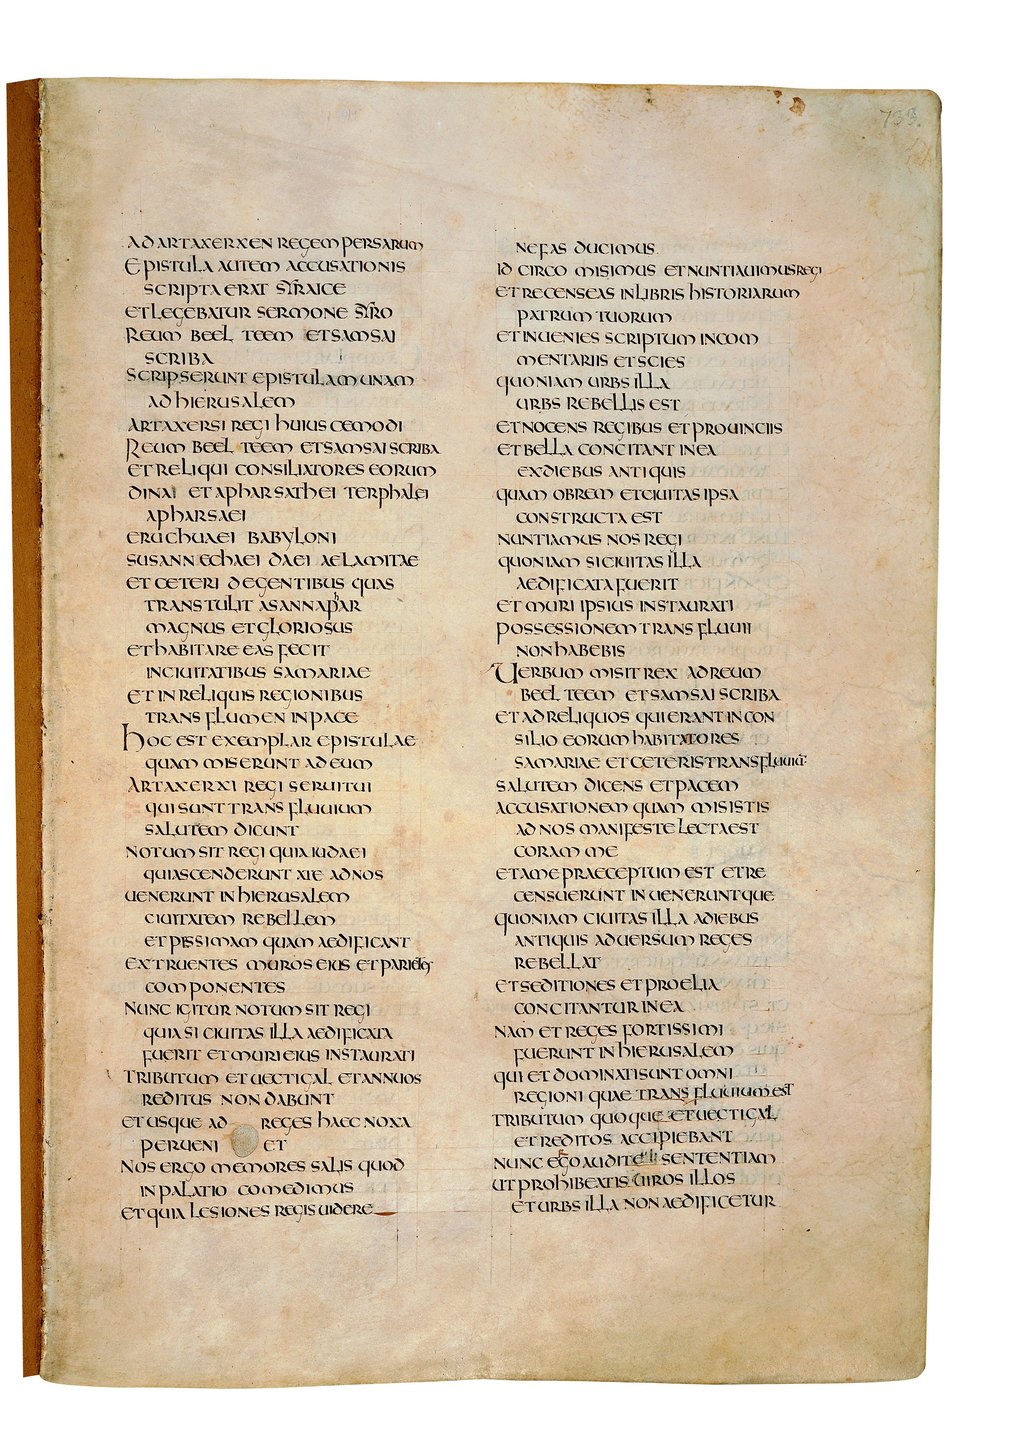 733.
AD ARTAXERXEN REGEM PERSARUM
EPISTULA AUTEM ACCUSATIONIS
SCRIPTA ERAT SYRAICE
ET LEGEBATUR SERMONE SYRO
REUM BEEL TEEM ET SAMSAI
SCRIBA
SCRIPSERUNT EPISTULAM UNAM
AD HIERUSALEM
ARTAXERSI REGI HUIUSCEMODI
REUM BEEL TEEM ET SAMSAI SCRIBA
ET RELIQUI CONSILIATORES EORUM
DINAI ET APHARSATHEI TERPHALEI
APHARSAEI
ERUCHUAEI BABYLONI
SUSANNECHAEI DAEI AELAMITAE
ET CETERI DEGENTIBUS QUAS
TRANSTULIT ASANNAPAR
MAGNUS ET GLORIOSUS
ET HABITARE EAS FECIT
IN CIUITATIBUS SAMARIAE
ET IN RELIQUIS REGIONIBUS
TRANS FLUMEN IN PACE
HOC EST EXEMPLAR EPISTULAE
QUAM MISERUNT AD EUM
ARTAXERXI REGI SERUI TUI
QUI SUNT TRANS FLUUIUM
SALUTEM DICUNT
NOTUM SIT REGI QUIA IUDAEI
QUI ASCENDERUNT XIE AD NOS
UENERUNT IN HIERUSALEM
CIUITATEM REBELLEM
ET PESSIMAM QUAM AEDIFICANT
EXTRUENTES MUROS EIUS ET PARIETES
COMPONENTES
NUNC IGITUR NOTUM SIT REGI
QUIA SI CIUITAS ILLA AEDIFICATA
FUERIT ET MURI EIUS INSTAURATI
TRIBUTUM ET UECTIGAL ET ANNUOS
REDITUS NON DABUNT
ET USQUE AD REGES HAEC NOXA
PERUENI ET
NOS ERGO MEMORES SALIS QUOD
IN PALATIO COMEDIMUS
ET QUIA LESIONES REGIS UIDERE
NEFAS DUCIMUS
IDCIRCO MISIMUS ET NUNTIAUIMUS REGI
ET RECENSEAS IN LIBRIS HISTORIARUM
PATRUM TUORUM
ET INUENIES SCRIPTUM IN COM
MENTARIIS ET SCIES
QUONIAM URBS ILLA
URBS REBELLIS EST
ET NOCENS REGIBUS ET PROUINCIIS
ET BELLA CONCITANT IN EA
EX DIEBUS ANTIQUIS
QUAM OBREM ET CIUITAS IPSA
CONSTRUCTA EST
NUNTIAMUS NOS REGI
QUONIAM SI CIUITAS ILLA
AEDIFICATA FUERIT
ET MURI IPSIUS INSTAURATI
POSSESSIONEM TRANS FLUUII
NON HABEBIS
UERBUM MISIT REX AD REUM
BEEL TEEM ET SAMSAI SCRIBA
ET AD RELIQUOS QUI ERANT IN CON
SILIO EORUM HABITATORES
SAMARIAE ET CETERIS TRANS FLUUIU
SALUTEM DICENS ET PACEM
ACCUSATIONEM QUAM MISISTIS
AD NOS MANIFESTE LECTA EST
CORAM ME
ET A ME PRAECEPTUM EST ET RE
CENSUERUNT INUENERUNTQUE
QUONIAM CIUITAS ILLA A DIEBUS
ANTIQUIS ADUERSUM REGES
REBELLAT
ET SEDITIONES ET PROELIA
CONCITANTUR IN EA
NAM ET REGES FORTISSIMI
FUERUNT IN HIERUSALEM
QUI ET DOMINATI SUNT OMNI
REGIONI QUAE TRANS FLUUIUM EST
TRIBUTUM QUOQUE ET UECTIGAL
ET REDITOS ACCIPIEBANT
NUNC EGO AUDITE SENTENTIAM
UT PROHIBEATIS UIROS ILLOS
ET URBS ILLA NON AEDIFICETUR